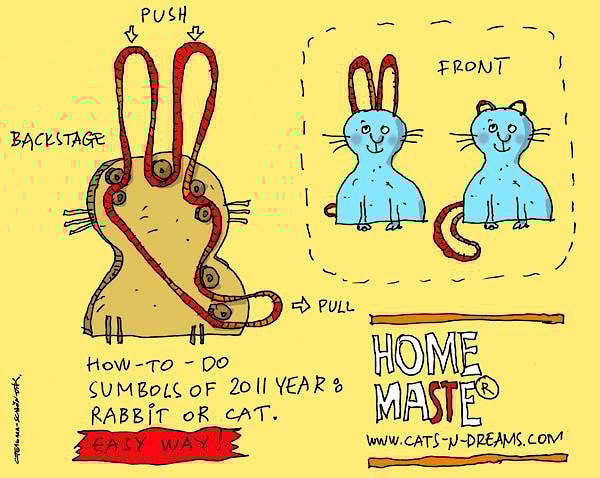 PUSH
BACKSTAGE
FRONT
PULL
HOW-TO-DO
SUMBOLS OF 2011 YEAR:
RABBIT OR CAT.
EASY WAY!
HOME
MASTE®
WWW.CATS-N-DREAMS.COM